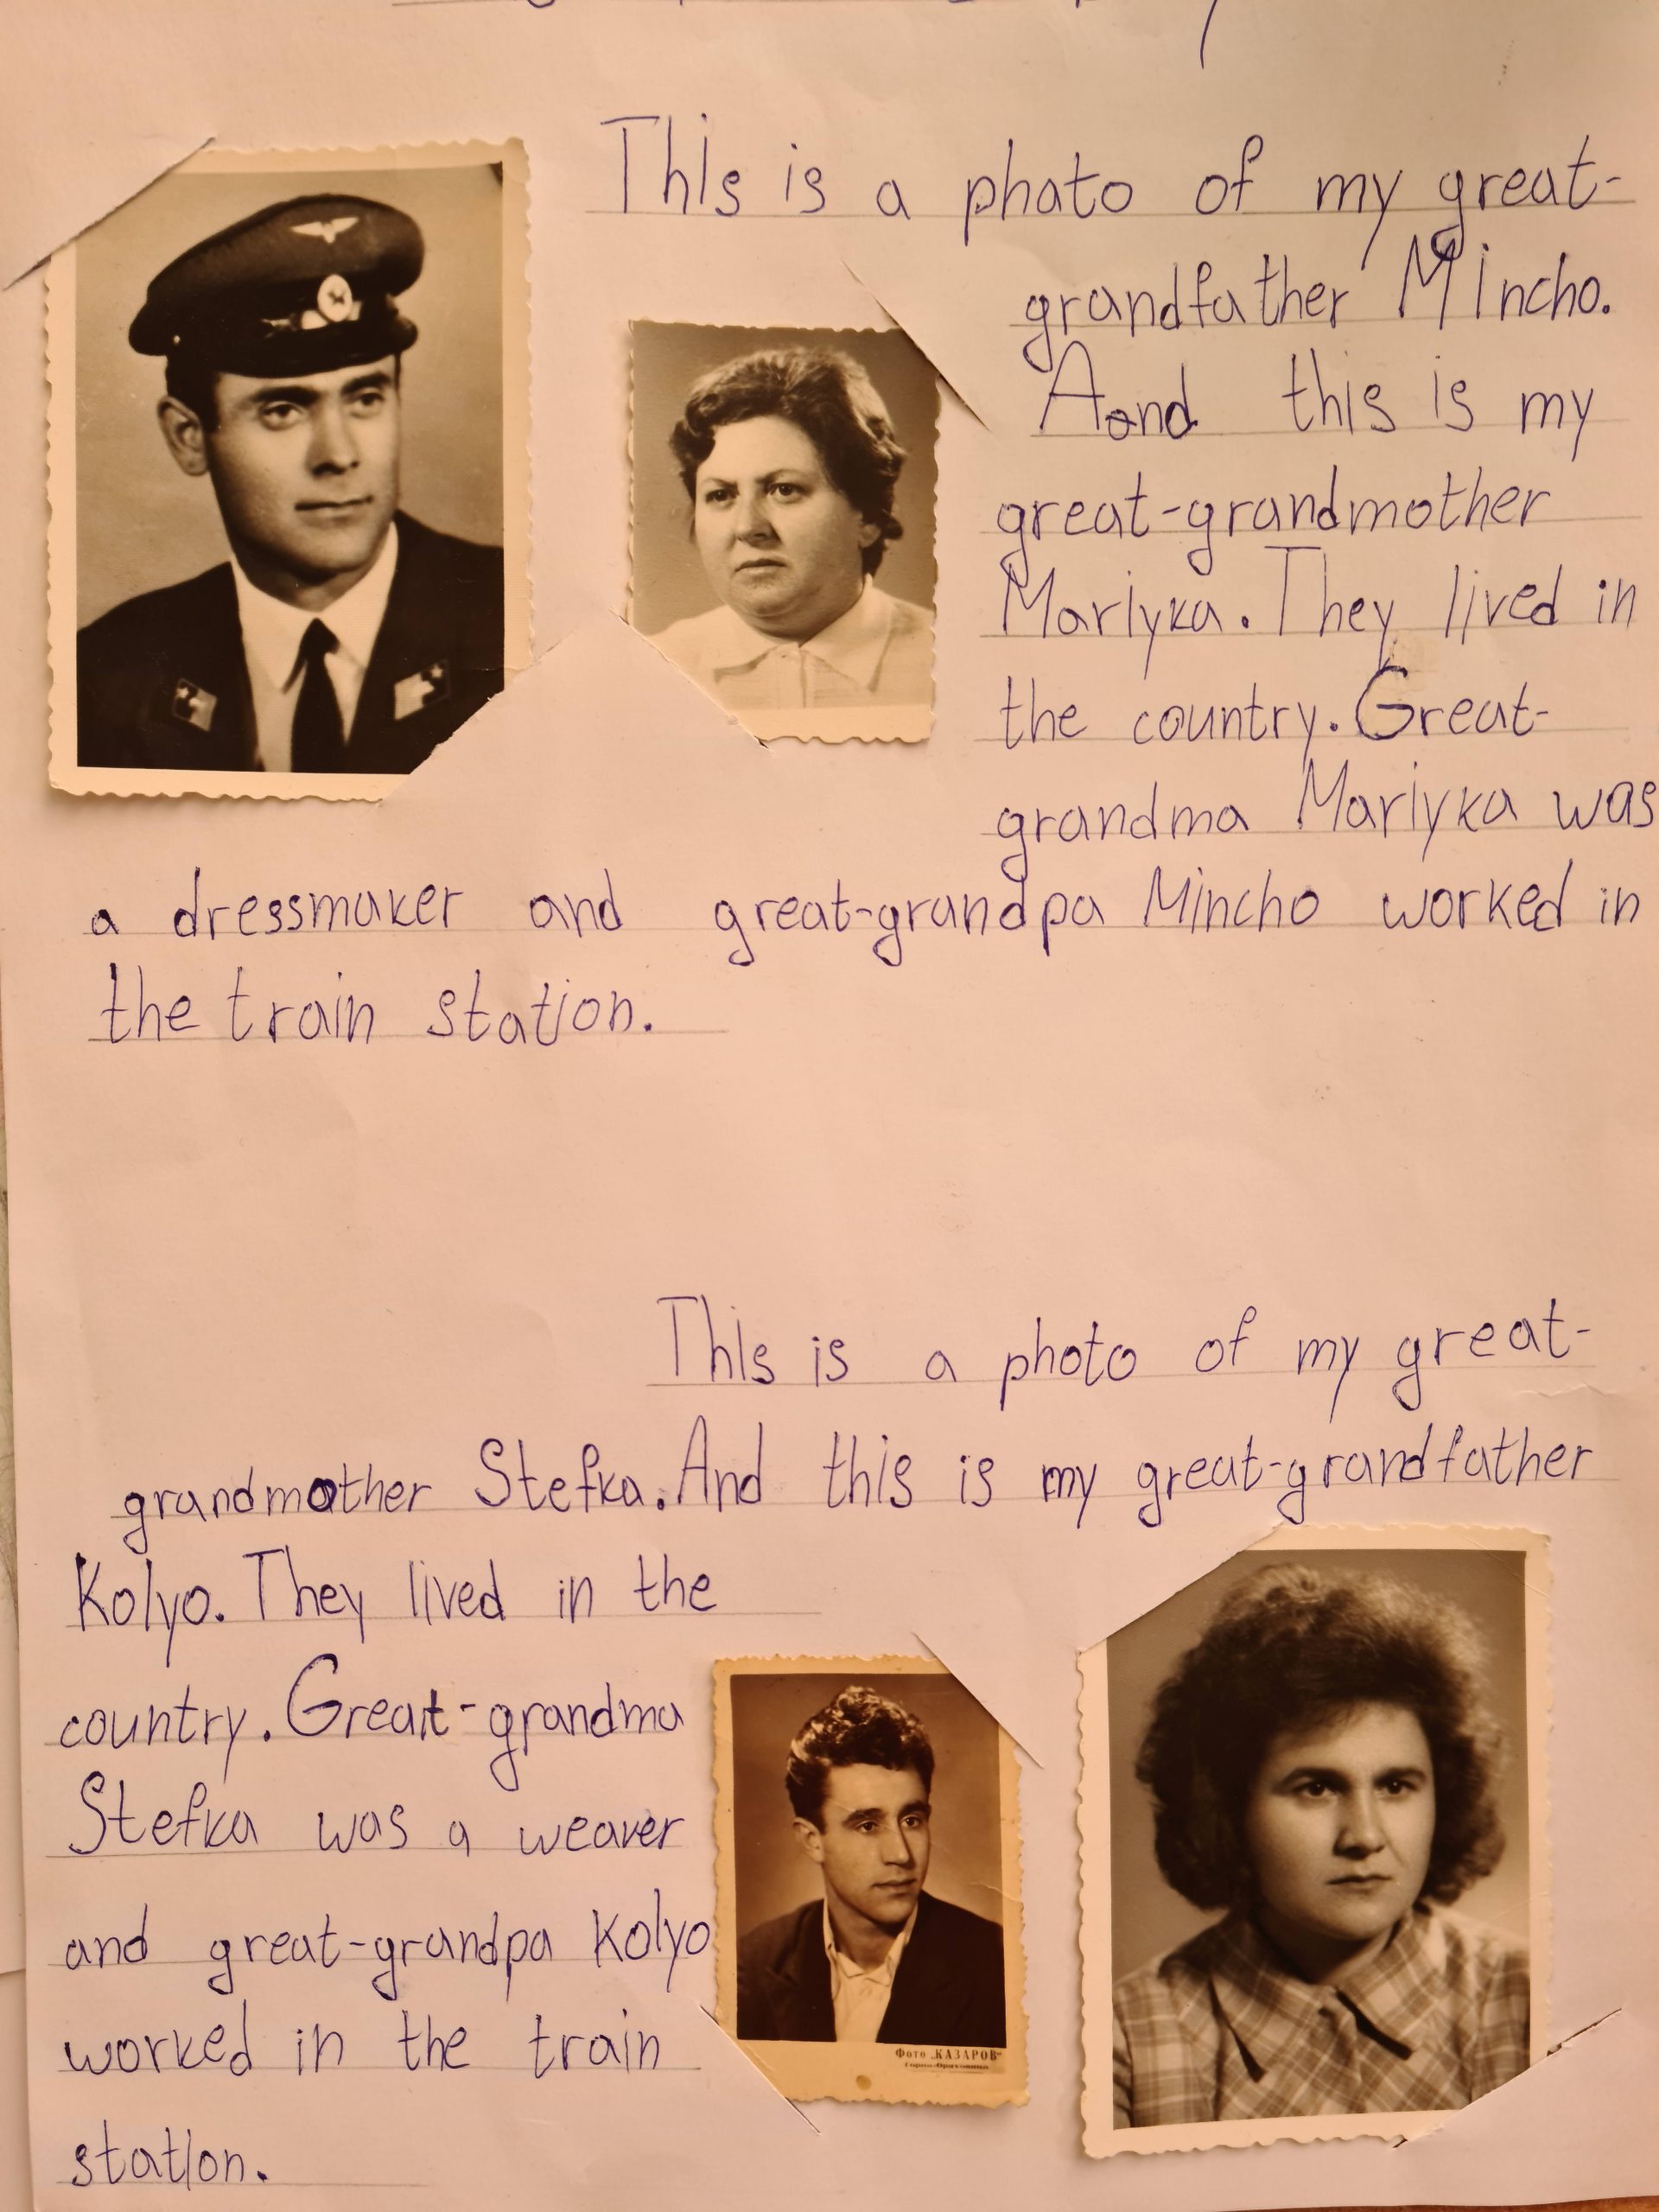 This is a photo of my great-
grandfather Mincho.
Aand this is my
great-grandmother
Mariyka. They lived in
the country. Great-
grandma Mariyka was
a dressmaker and great-grandpa Mincho worked in
the train station.
This is a photo of my great-
grandmother Stefka. And this is my great-grandfather
Kolyo. They lived in the
country. Great-grandma
Stefka was a weaver
and great-grandpa Kolyo
worked in the train
station.
Фото „КАЗАРОВ“